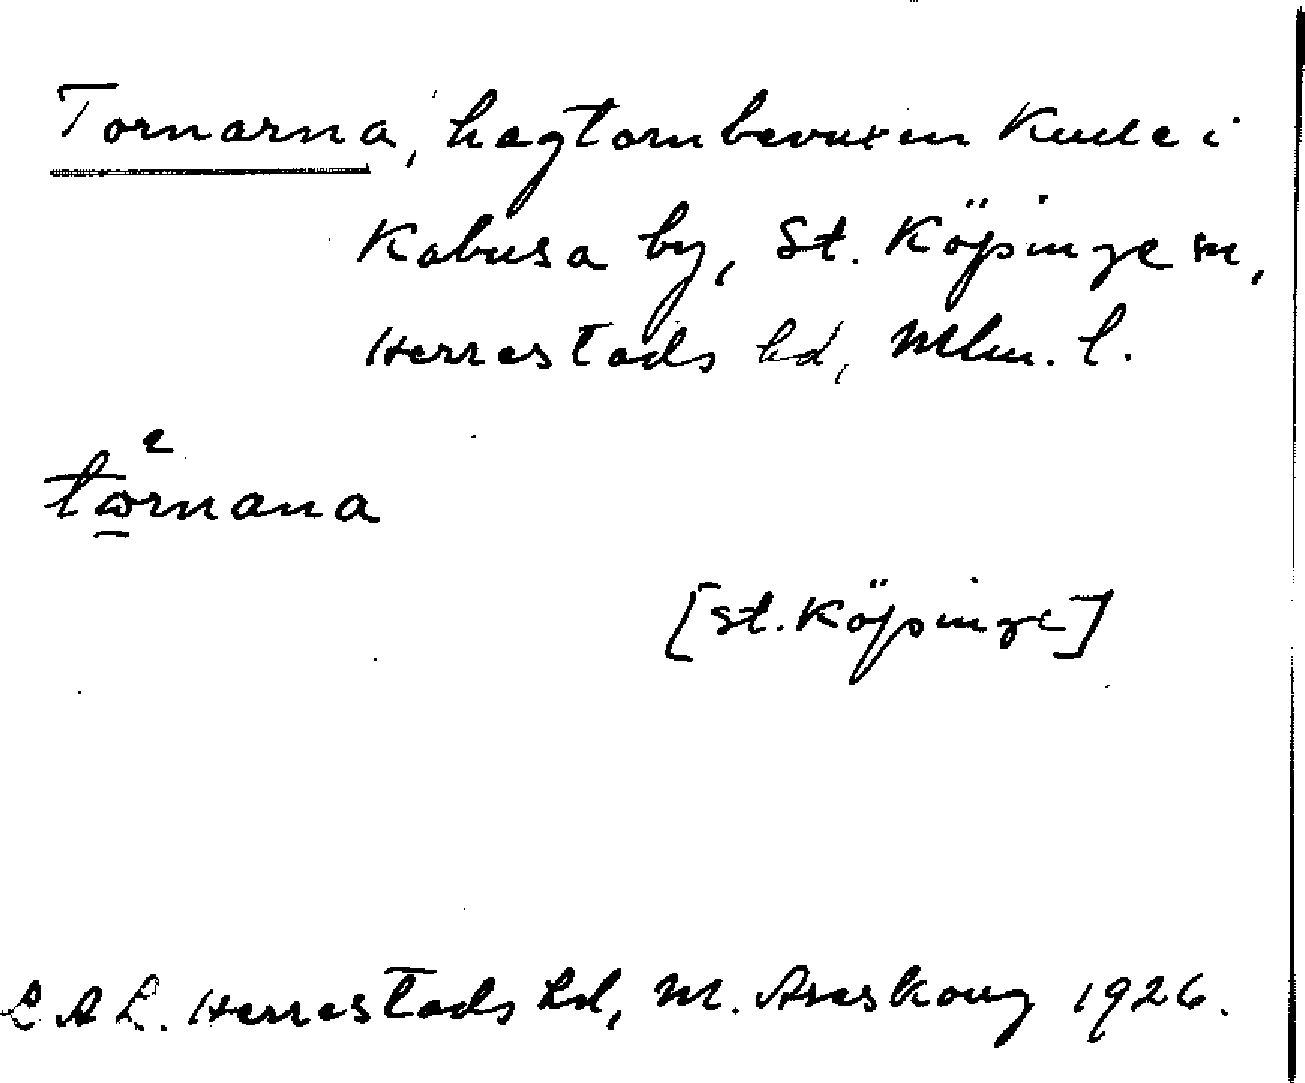 Tornarna, hagtornbevuxen kulle i
Kabusa by, St. Köpinge sn,
Herrestads hd, Mlm. l.
tɷrnana
[St. Köpinge]
LAL. Herrestads hd, M. Areskoug 1926.